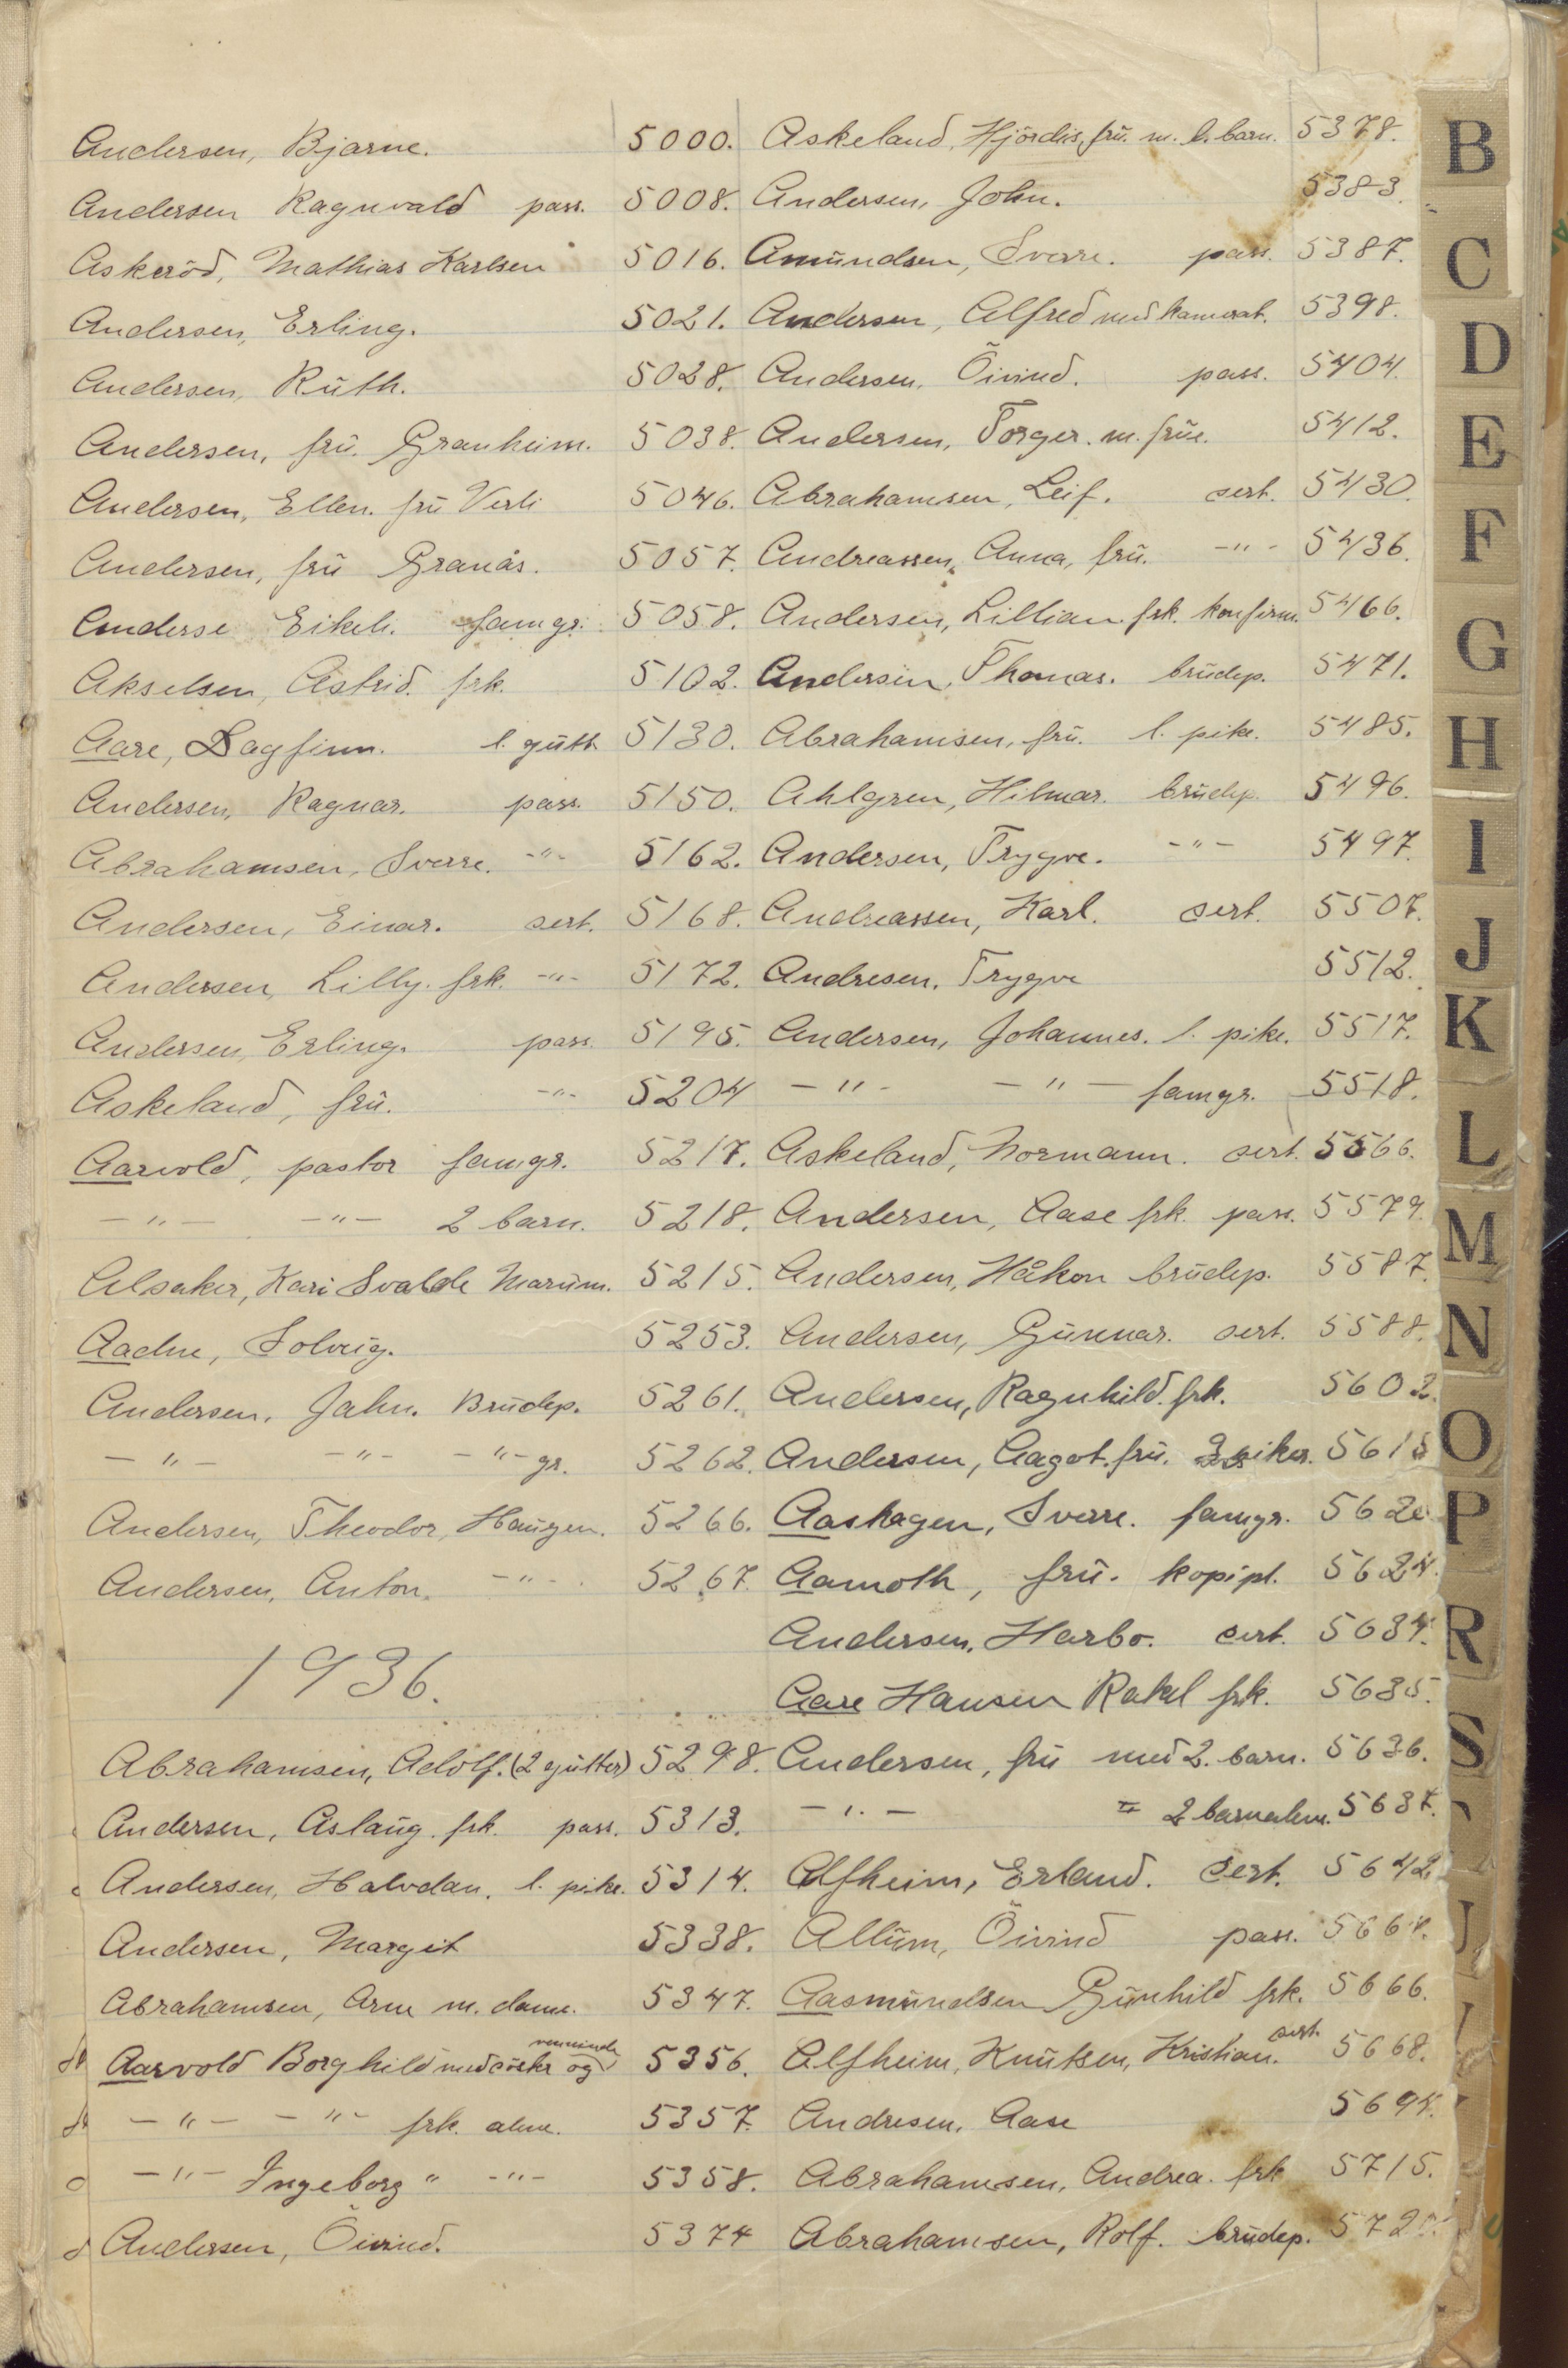 Andersen, Bjarne. 5000.
Andersen Ragnvald pass. 5008.
Askeröd, Mathias Karlsen 5016.
Andersen, Erling. 5021.
Andersen, Ruth. 5028.
Andersen, fru. Granheim. 5038.
Andersen, Ellen. fru Verli 5046.
Andersen, fru Granås. 5057.
Anderse Eikeli. famgr. 5058.
Akselsen, Astrid. frk. 5102.
Aare, Dagfinn. l. gutt 5130.
Andersen, Ragnar. pass. 5150.
Abrahamsen, Sverre. -"- 5162.
Andersen, Einar. sert. 5168.
Andersen, Lilly. frk. -"- 5172.
Andersen, Erling. pass. 5195.
Askeland, fru. -"- 5204
Aarvold, pastor famgr. 5217.
-"- -"- 2 barn. 5218.
Alsaker, Kari Svalde Marum. 5215.
Aadne, Solveig. 5253.
Andersen, Jahn. Brudep. 5261.
-"- -"- -"- gr. 5262.
Andersen, Theodor, Haugen. 5266.
Andersen, Anton. -"- 5267.
1936.
Abrahamsen, Adolf. (2 gutter) 5298.
Andersen, Aslaug. frk. pass. 5313.
Andersen, Halvdan. l. pike. 5314.
Andersen, Margit 5338.
Abrahamsen, Arne m. dame. 5347.
Aarvold Borghild med søskr og veninde 5356.
-"- -"- frk. alene. 5357.
-"- Ingeborg " -"- 5358.
Andersen, Öivind. 5374
Askeland, Hjördis, fru. m. l. barn. 5378.
Andersen, John. 5383.
Amundsen, Sverre. pass. 5387.
Andersen, Alfred med kamerat. 5398.
Andersen, Öivind. pass. 5404.
Andersen, Torger. m. frue. 5412.
Abrahamsen, Leif. sert. 5430.
Andreassen, Anna, fru. -"- 5436.
Andersen, Lillian. frk. konfirm. 5466.
Andersen, Thomas. brudep. 5471.
Abrahamsen, fru. l. pike. 5485.
Ahlgren, Hilmar. brudep. 5496.
Andersen, Trygve. -"- 5497.
Andreassen, Karl. sert. 5507.
Andresen, Trygve 5512.
Andersen, Johannes. l. pike. 5517.
-"- -"- famgr. 5518.
Askeland, Normann. sert. 5566.
Andersen, Aase frk. pass. 5579.
Andersen, Håkon brudep. 5587.
Andersen, Gunnar. sert. 5588.
Andersen, Ragnhild. frk. 5602.
Andersen, Aagot. fru. 2 piker. 5615
Aashagen, Sverre. famgr. 5620
Aamoth, fru. kopipl. 5624.
Andersen, Harbo. sert. 5634.
Aare Hansen Rakel frk. 5635.
Andersen, fru med 2. barn. 5636.
-"- = 2 barnalene. 5637.
Alfheim, Erland. Sert. 5642
Allum, Öivind pass. 5664.
Aasmundsen Gunhild frk. 5666.
Alfheim, Knutsen, Kristian. sert. 5668.
Andresen, Aase 5694.
Abrahamsen, Andrea. frk 5715.
Abrahamsen, Rolf. brudep.
B
C
D
E
F
G
H
I
J
K
L
M
N
O
P
R
S